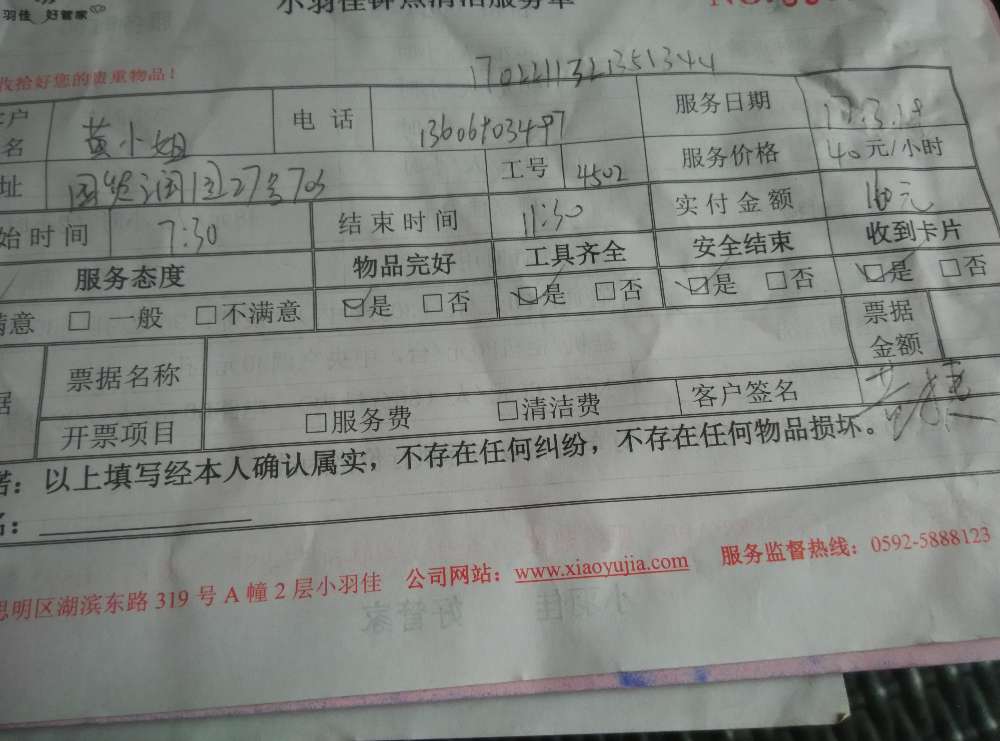 羽佳 好管家
小羽佳钟点清洁服务单 NO:
收拾好您的贵重物品!
1702211321351344
户名 黄小姐 电话 13606903497 服务日期 17.3.19
址 27号703 工号 4502 服务价格 40元/小时
始时间 7:30 结束时间 11:30 实付金额 160元
服务态度 物品完好 工具齐全 安全结束 收到卡片
满意 □ 一般 □不满意 ☑是 □否 ☑是 □否 ☑是 □否 ☑是 □否
据 票据名称 票据金额
开票项目 □服务费 □清洁费 客户签名
诺:以上填写经本人确认属实,不存在任何纠纷,不存在任何物品损坏。
名:
思明区湖滨东路 319 号 A 幢 2 层小羽佳 公司网站:www.xiaoyujia.com 服务监督热线:0592-5888123
小羽佳 好管家